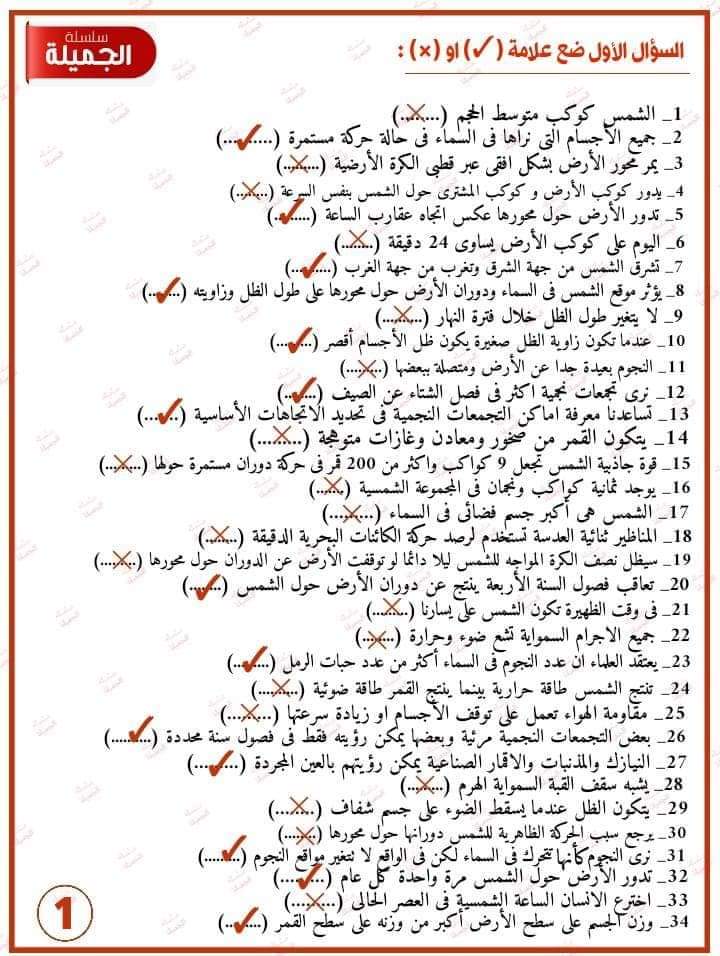 سلسلة
الجميلة
السؤال الأول ضع علامة (✓) او (×) :
1_ الشمس كوكب متوسط الحجم (...×....)
2_ جميع الأجسام التى نراها فى السماء فى حالة حركة مستمرة (...✓....)
3_ يمر محور الأرض بشكل افقى عبر قطبى الكرة الأرضية (...×....)
4_ يدور كوكب الأرض و كوكب المشترى حول الشمس بنفس السرعة (...×....)
5_ تدور الأرض حول محورها عكس اتجاه عقارب الساعة (...✓....)
6_ اليوم على كوكب الأرض يساوى 24 دقيقة (...×....)
7_ تشرق الشمس من جهة الشرق وتغرب من جهة الغرب (...✓....)
8_ يؤثر موقع الشمس فى السماء ودوران الأرض حول محورها على طول الظل وزاويته (...✓....)
9_ لا يتغير طول الظل خلال فترة النهار (...×....)
10_ عندما تكون زاوية الظل صغيرة يكون ظل الأجسام أقصر (...✓....)
11_ النجوم بعيدة جدا عن الأرض ومتصلة ببعضها (...×....)
12_ نرى تجمعات نجمية اكثر فى فصل الشتاء عن الصيف (...✓....)
13_ تساعدنا معرفة اماكن التجمعات النجمية فى تحديد الاتجاهات الأساسية (...✓....)
14_ يتكون القمر من صخور ومعادن وغازات متوهجة (...×....)
15_ قوة جاذبية الشمس تجعل 9 كواكب واكثر من 200 قمر فى حركة دوران مستمرة حولها (...×....)
16_ يوجد ثمانية كواكب ونجمان فى المجموعة الشمسية (...×....)
17_ الشمس هى أكبر جسم فضائى فى السماء (...×....)
18_ المناظير ثنائية العدسة تستخدم لرصد حركة الكائنات البحرية الدقيقة (...×....)
19_ سيظل نصف الكرة المواجه للشمس ليلا دائما لو توقفت الأرض عن الدوران حول محورها (...×....)
20_ تعاقب فصول السنة الأربعة ينتج عن دوران الأرض حول الشمس (...✓....)
21_ فى وقت الظهيرة تكون الشمس على يسارنا (...×....)
22_ جميع الاجرام السمواية تشع ضوء وحرارة (...×....)
23_ يعتقد العلماء ان عدد النجوم فى السماء أكثر من عدد حبات الرمل (...✓....)
24_ تنتج الشمس طاقة حرارية بينما ينتج القمر طاقة ضوئية (...×....)
25_ مقاومة الهواء تعمل على توقف الأجسام او زيادة سرعتها (...×....)
26_ بعض التجمعات النجمية مرئية وبعضها يمكن رؤيته فقط فى فصول سنة محددة (...✓....)
27_ النيازك والمذنبات والاقمار الصناعية يمكن رؤيتهم بالعين المجردة (...✓....)
28_ يشبه سقف القبة السمواية الهرم (...×....)
29_ يتكون الظل عندما يسقط الضوء على جسم شفاف (...×....)
30_ يرجع سبب الحركة الظاهرية للشمس دورانها حول محورها (...×....)
31_ نرى النجوم كأنها تتحرك فى السماء لكن فى الواقع لا تتغير مواقع النجوم (...✓....)
32_ تدور الأرض حول الشمس مرة واحدة كل عام (...✓....)
33_ اخترع الانسان الساعة الشمسية فى العصر الحالى (...×....)
34_ وزن الجسم على سطح الأرض أكبر من وزنه على سطح القمر (...✓....)
1